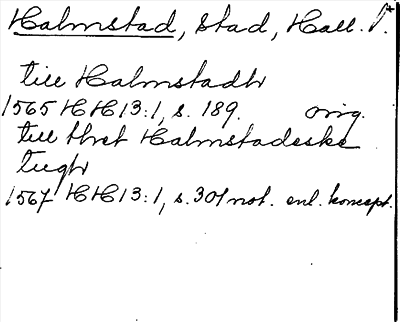 Halmstad, stad, Hall.
till Halmstadh
1565 HH 13:1, s. 189. orig.
till thet Halmstadeske
tugh
1567 HH 13:1, s. 301 not. enl. koncept.